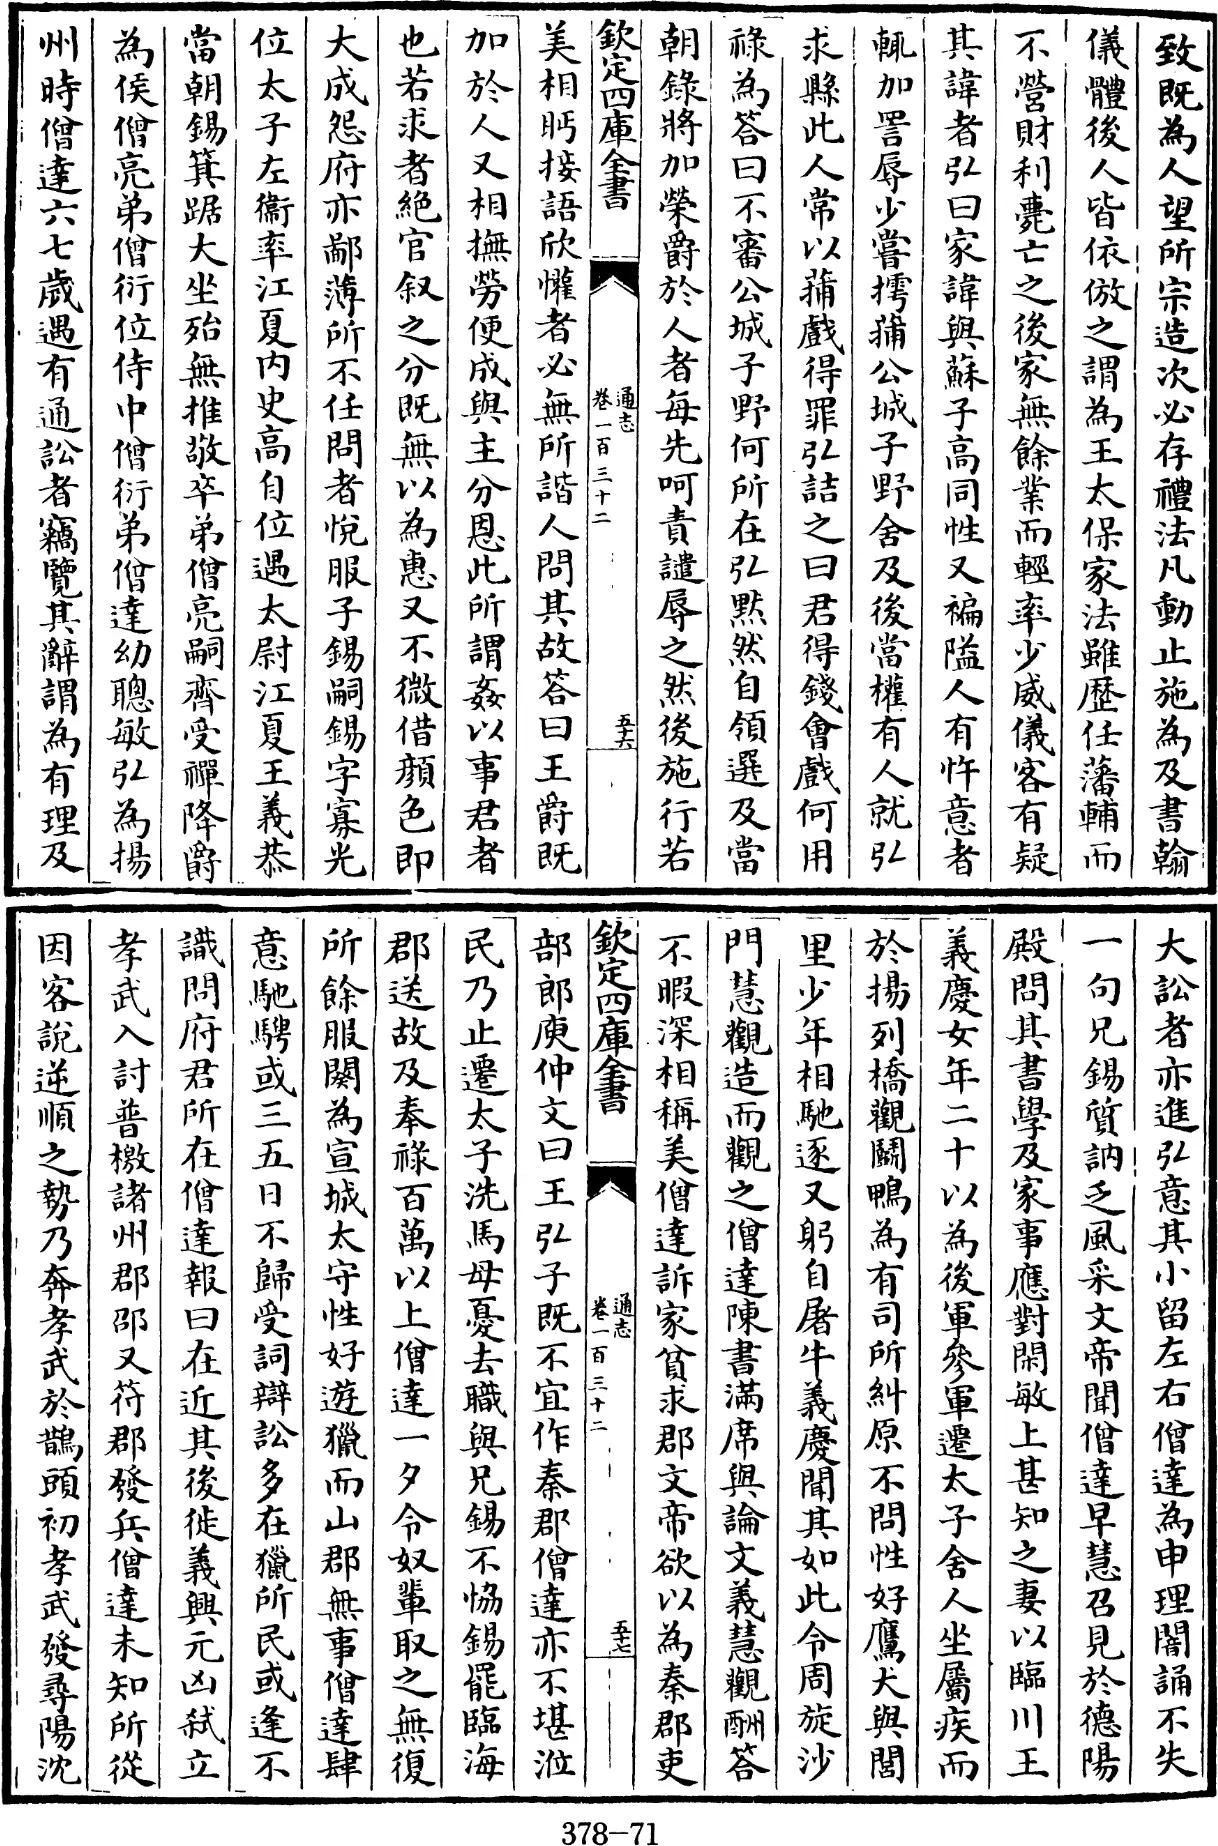 致既為人望所宗造次必存禮法凡動止施為及書翰
儀體後人皆依倣之謂為王太保家法雖歷任藩輔而
不營財利薨亡之後家無餘業而輕率少威儀客有疑
其諱者弘曰家諱與蘇子高同性又褊隘人有忤意者
輒加詈辱少嘗摴蒱公城子野舍及後當權有人就弘
求縣此人常以蒱戲得罪弘詰之曰君得錢會戲何用
祿為答曰不審公城子野何所在弘默然自領選及當
朝錄將加榮爵於人者每先呵責譴辱之然後施行若
欽定四庫全書
通志
卷一百三十二
五十六
美相盻接語欣懽者必無所諧人問其故答曰王爵既
加於人又相撫勞便成與主分恩此所謂姦以事君者
也若求者絶官叙之分既無以為惠又不微借顔色即
大成怨府亦鄙薄所不任問者悅服子錫嗣錫字寡光
位太子左衞率江夏內史高自位遇太尉江夏王義恭
當朝錫箕踞大坐殆無推敬卒弟僧亮嗣齊受禪降爵
為侯僧亮弟僧衍位侍中僧衍弟僧達幼聰敏弘為揚
州時僧達六七歲遇有通訟者竊覽其辭謂為有理及
大訟者亦進弘意其小留左右僧達為申理闇誦不失
一句兄錫質訥乏風采文帝聞僧達早慧召見於德陽
殿問其書學及家事應對閑敏上甚知之妻以臨川王
義慶女年二十以為後軍參軍遷太子舍人坐屬疾而
於揚列橋觀鬭鴨為有司所糾原不問性好鷹犬與閭
里少年相馳逐又躬自屠牛義慶聞其如此令周旋沙
門慧觀造而觀之僧達陳書滿席與論文義慧觀酬答
不暇深相稱美僧達訴家貧求郡文帝欲以為秦郡吏
欽定四庫全書
通志
卷一百三十二
五十七
部郎庾仲文曰王弘子既不宜作秦郡僧達亦不堪涖
民乃止遷太子洗馬母憂去職與兄錫不恊錫罷臨海
郡送故及奉祿百萬以上僧達一夕令奴輩取之無復
所餘服闋為宣城太守性好遊獵而山郡無事僧達肆
意馳騁或三五日不歸受詞辯訟多在獵所民或逢不
識問府君所在僧達報曰在近其後徙義興元凶弒立
孝武入討普檄諸州郡邵又符郡發兵僧達未知所從
因客說逆順之勢乃奔孝武於鵲頭初孝武發尋陽沈
378-71